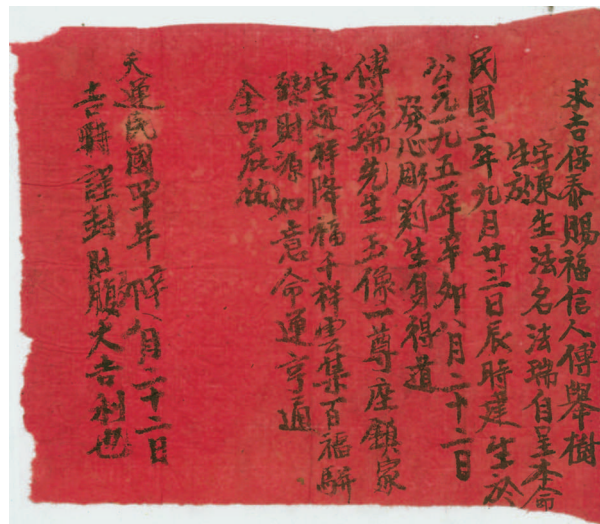 求吉保泰賜福信人傅舉樹
字東生法名法瑞自呈本命
生於
民國三年九月廿三日辰時建生於
公元一九五一年辛夘八月二十二日
發心彫刻生身得道
傅法瑞先生玉像一尊座鎮家
堂迎祥降福千祥雲集百福駢
臻財源如意命運亨通
全叩庇佑
天運民國四十年辛夘八月二十二日
吉時謹封肚腹大吉利也